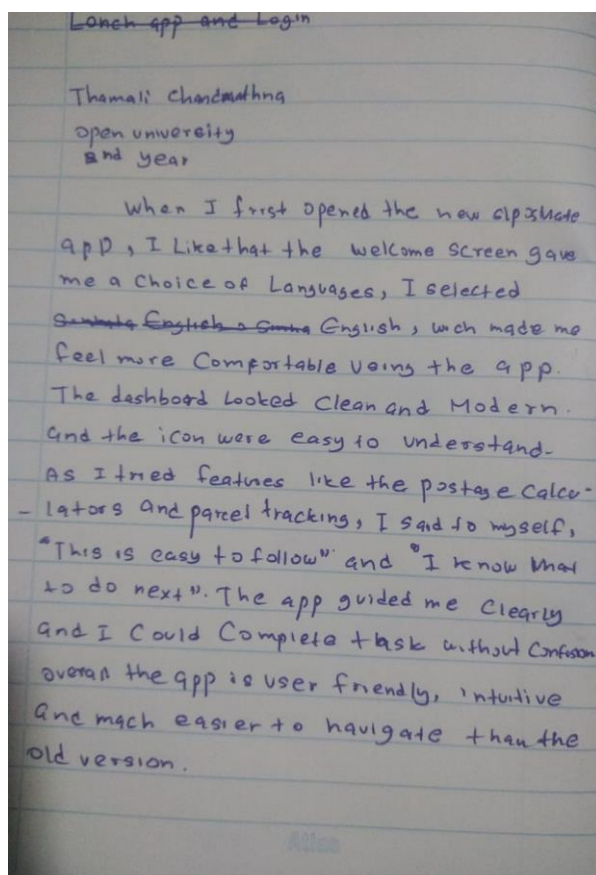 Lonch app and Login
Thamali
open university
2nd year
When I frist opened the new
app, I Like that the welcome screen gave
me a choice of Languages, I selected
English, wich made me
feel more Comfortable using the app.
The dashbord Looked Clean and Modern.
and the icon were easy to understand-
As I tried features like the postage Calcu-
-lators and parcel tracking, I said to myself,
"This is easy to follow" and "I know what
to do next". The app guided me Clearly
and I Could Complete task without Confusion
overall the app is user friendly, intuitive
and mach easier to navigate than the
old version.
Atlas